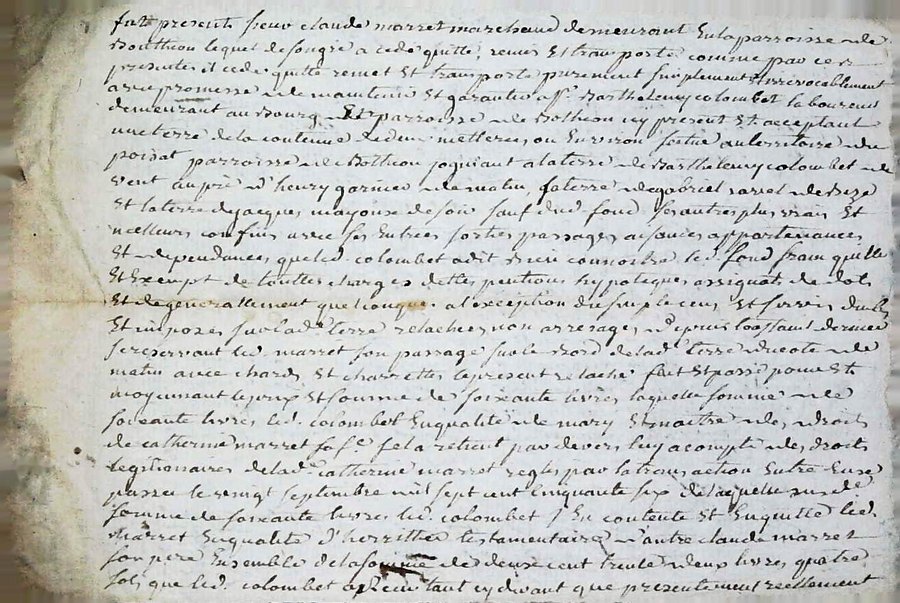 fut present sieur claude marret marchand demeurant En la parroisse de
Bouttheon lequel de son gré a cedé quitté, remis Et transporté comme par ces
presentes il cede quitte remet Et transporte purement simplement Et irrevocablement
avec promesse de maintenir Et garantir a sr. Barthelemy colombet laboureur
demeurant au Bourg Et parroisse de Botheon icy present Et acceptant
une terre de la contenue de deux metterees ou Environ scitué au territoire du
poisat parroisse de Botheon joignant a la terre de Barthelemy colombet de
vent au pré d'henry garnier de matin, la terre de gabriel ravel de bize
Et la terre de jacques mayousse de soir sauf dud. fond ses autres plus vrais Et
meilleurs confins avec ses Entrées sorties passages aisances appartenances
Et dependances que led. colombet a dit bien connoitre led. fond franc quitte
Et Exempt de touttes charges dettes pentions hypoteques assignats de dots
Et de generallement quelconques a l'exception du simple cens Et servis dubs
Et imposes sur lad. terre relachée non arrerages d'y ceux la toussaint derniere
se reservant led. marret son passage sur le Bord de lad. terre du coté de
matin avec chards Et charrettes le present relaché fait Et passé pour Et
moyennant le prix Et somme de soixante livres laquelle somme de
soixante livres led. colombet En qualité de mary Et maitre des droits
de catherine marret sa fe. se la retient par devers luy a compte des droits
legitimaires de lad. catherine marret reglés par la transaction Entre Eux
passée le vingt septembre mil sept cent cinquante six de laquelle susd.
somme de soixante livres led. colombet s'En contente Et En quitte led.
marret En qualité d'herittier testamentaire d'autre claude marret
son pere Ensemble de la somme de deux cent trente deux livres quatre
sols que led. colombet a tant cy devant que presentement reellement